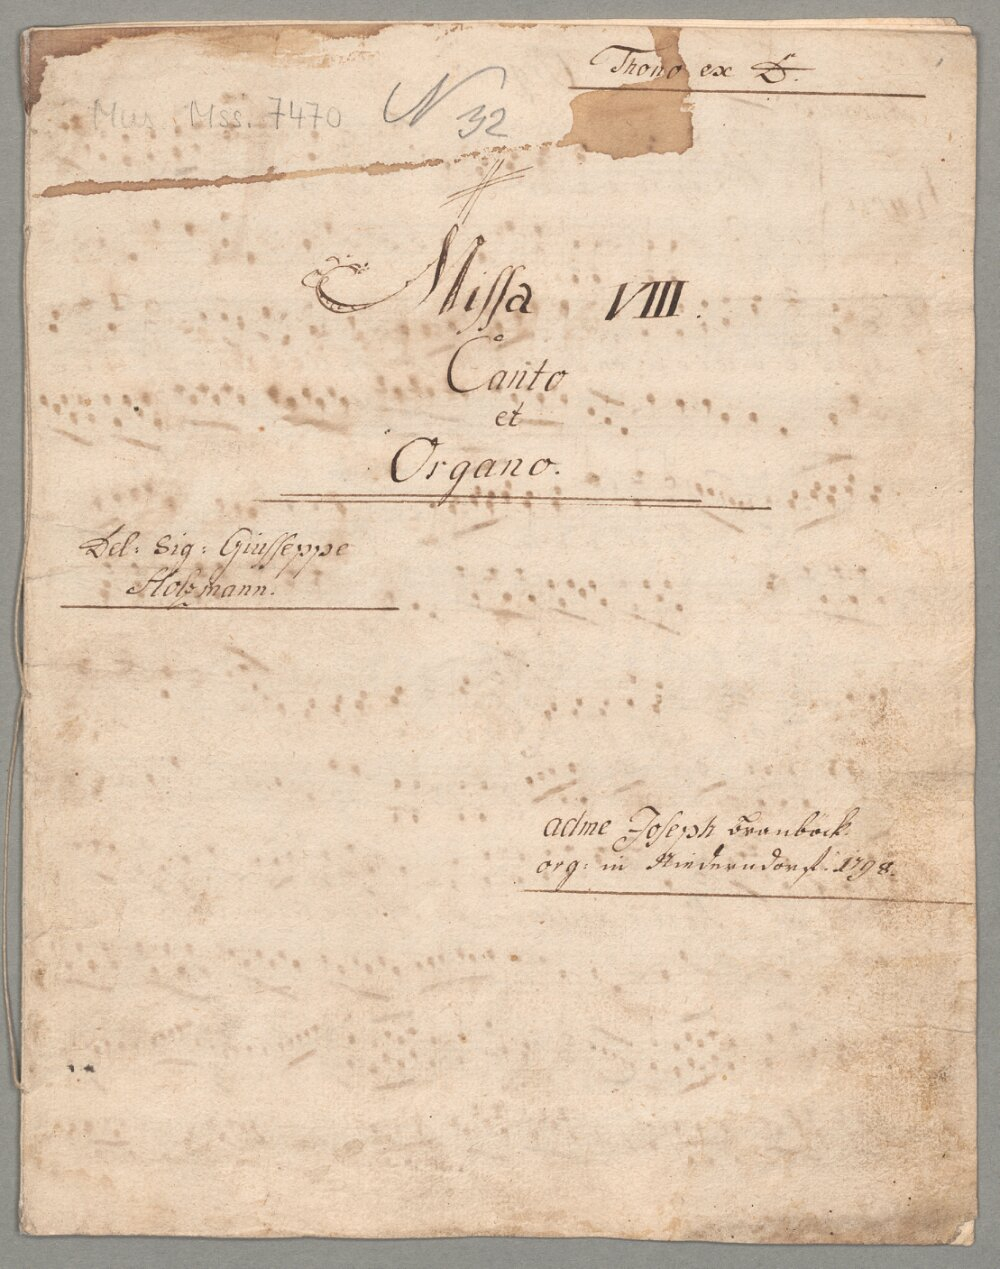 Thono ex D.
Mus. Mss. 7470
N 32
Missa VIII.
Canto
et
Organo.
Del: Sig: Giusseppe
Holzmann.
adme Joseph Cranböck
org: in Niederndorf. 1798.